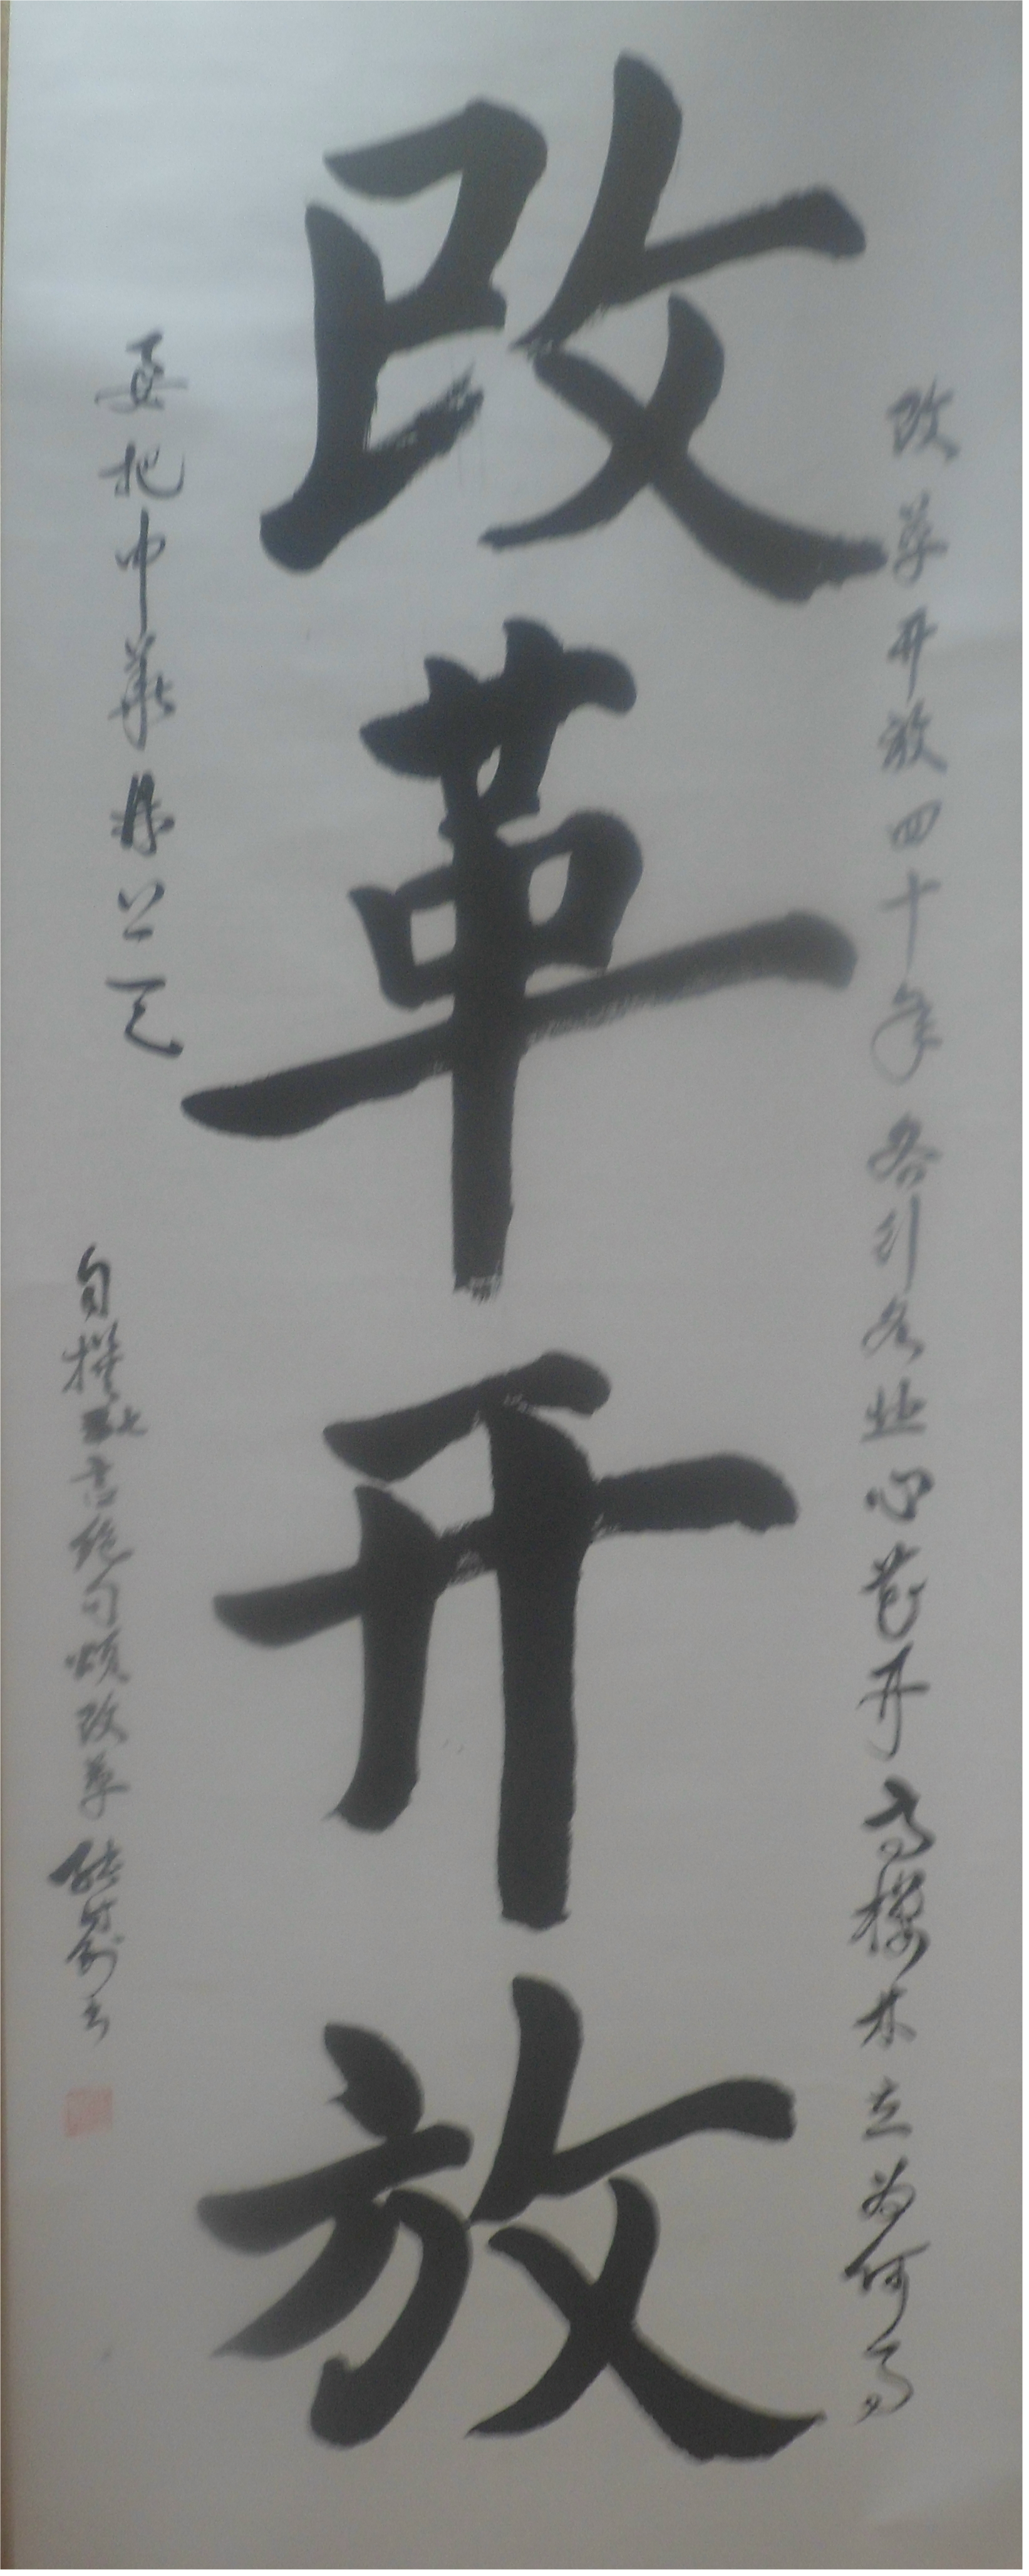 改革开放
改革开放四十年各行各业心花开高楼林立为何高
要把中华变人
自撰七言绝句颂改革